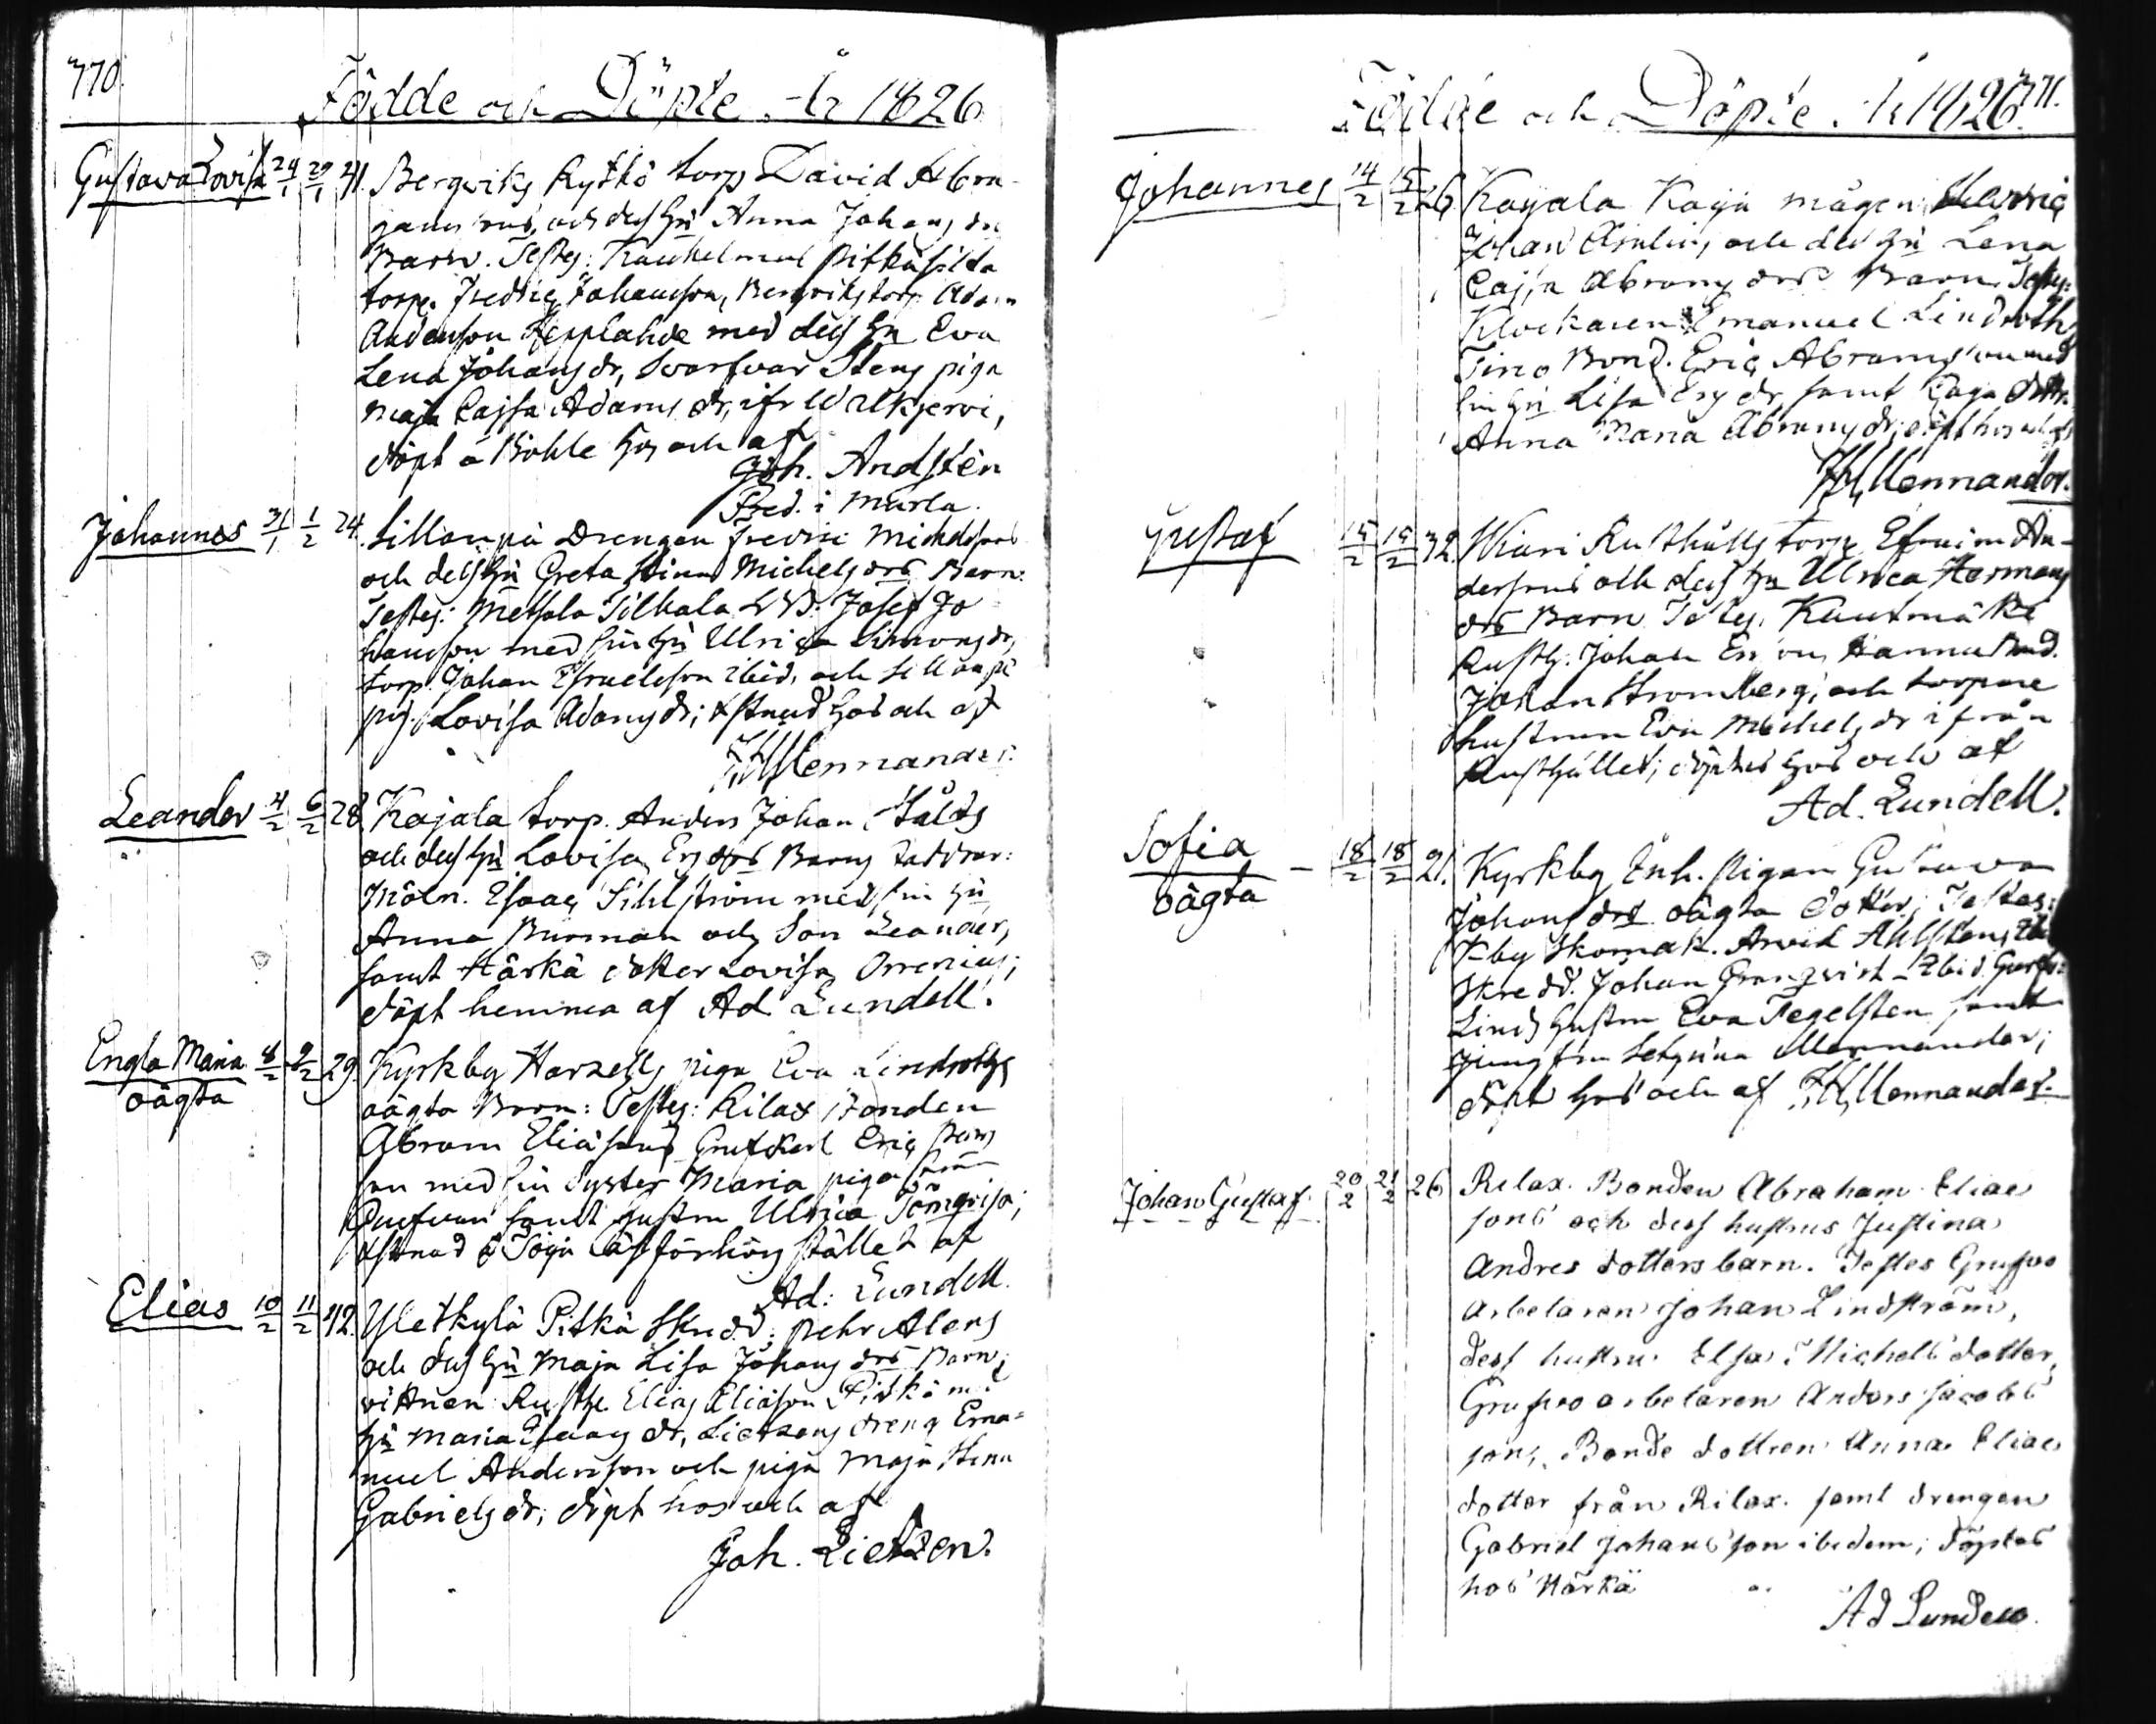 770.
Födde och Döpte År 1826
Gustava Lovisa 29/1 29/1 41. Bergviks Ryökö torp David Abra-
hams sons och dess Hu Anna Johans drs
Barn. Testes: Kaukelmas Pitkäsilda
torp. Fredric Johansson, Bergvikstorp. Adam
Andersson Lepplahde med dess Hu Eva
Lena Johans dr, Svarfvar Stens piga
Maja Cajsa Adams dr, ifr Walkjervi,
döpt å Bohle hos och af
Joh. Andstén
Pred. i Murla.
Johannes 31/1 1/2 24. Sillanpä Drengen Fredric Michelssons
och dess Hu Greta Stina Michels drs Barn.
Testes: Metsola Silkala LB. Josef Jo
hansson med sin Hu Ulrica Simons dr,
torp. Johan Israelsson ibid. och Sillanpä
pig. Lovisa Adams dr; xstnad hos och af
FHMennander.
Leander 4/2 6/2 28 Kajala torp. Anders Johan Ståls
och dess Hu Lovisa Ers drs Barns Faddrar:
Möln. Isaac Sihlström med sin Hu
Anna Burman och Son Leander,
samt Härkä dotter Lovisa Orrenius;
döpt hemma af Ad. Lundell.
Engla Maria 8/2 9/2 29. Kyrkby Harzells piga Eva Lindroths
oägta
oägta Barn: Testes: Kilax Bonden
Abram Eliasson, Grufkarl Eric
son med sin Syster Maria piga
Grufvan samt hustru Ulrica Tömqvist;
xstnad å Töijä Läsförhörs stället af
Ad: Lundell.
Elias 10/2 11/2 42. Yletkylä Pitkä Skredd. Pehr Alens
och dess Hu Maja Lisa Johans drs Barn;
vittnen Rusth. Elias Eliasson Pitkä med
Hu Maria Isaacs dr, Lietzens dreng Ema-
nuel Andersson och piga Maja Stina
Gabriels dr; döpt hos och af
Joh. Lietzen.
Födde och Döpte År 1826. 771.
Johannes 14/2 15/2 26 Kajala Kaijn mågen
Johan och dess Hu Lena
Cajsa Abrams drs Barn. Testes:
Klockaren Emanuel Lindroth,
Tino Bond. Eric Abramsson med
sin Hu Lisa Ers dr samt Kaga dottr.
Anna Maria Abrams dr; döpt hos och af
FHMennander.
Gustaf 15/2 19/2 32. Wiari Rusthålls torp. Efraim An-
derssons och dess Hu Ulrica Hermans
drs Barn Testes. Kuutmäki
Rusth. Johan Ersson, Hannu Bond.
Johan Strömberg, och torpare
hustrun Eva Michels dr ifrån
Rusthållet; döptes hos och af
Ad. Lundell.
Sofia 18/2 18/2 21. Kyrkby Enh. Pigan Gustawa
oägta
Johans drs oägta Dotter; Testes:
K-by Skomak. Arvid Ahlsten,
Skredd. Johan Granqvist ibid.
Linds hustru Eva Tegelsten samt
jungfru Mennander;
döpt hos och af FHMennander.
Johan Gustaf. 20/2 21/2 26 Kilax. Bonden Abraham Elias
sons och dess hustrus Justina
Andres dotters barn. Testes Grufwo
arbetaren Johan Lindström,
dess hustru Elsa Michels dotter,
Grufwo arbetaren Anders Jacobs
son, Bonde dottren Anna Elias
dotter från Kilax. samt drengen
Gabriel Johansson ibidem; döptes
hos Härkä
Ad Lundell.